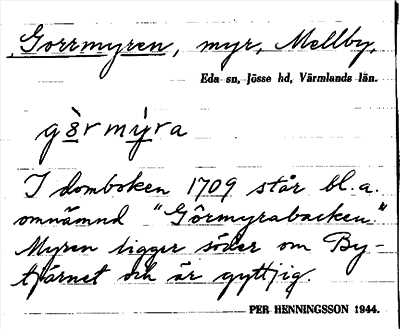 Gorrmyren, myr, Mellby,
Eda sn, Jösse hd, Värmlands län.
gòrmýra
I domboken 1709 står bl.a.
omnämnd "Görmyrabacken".
Myren ligger söder om By-
tjärnet och är gyttjig.
PER HENNINGSSON 1944.